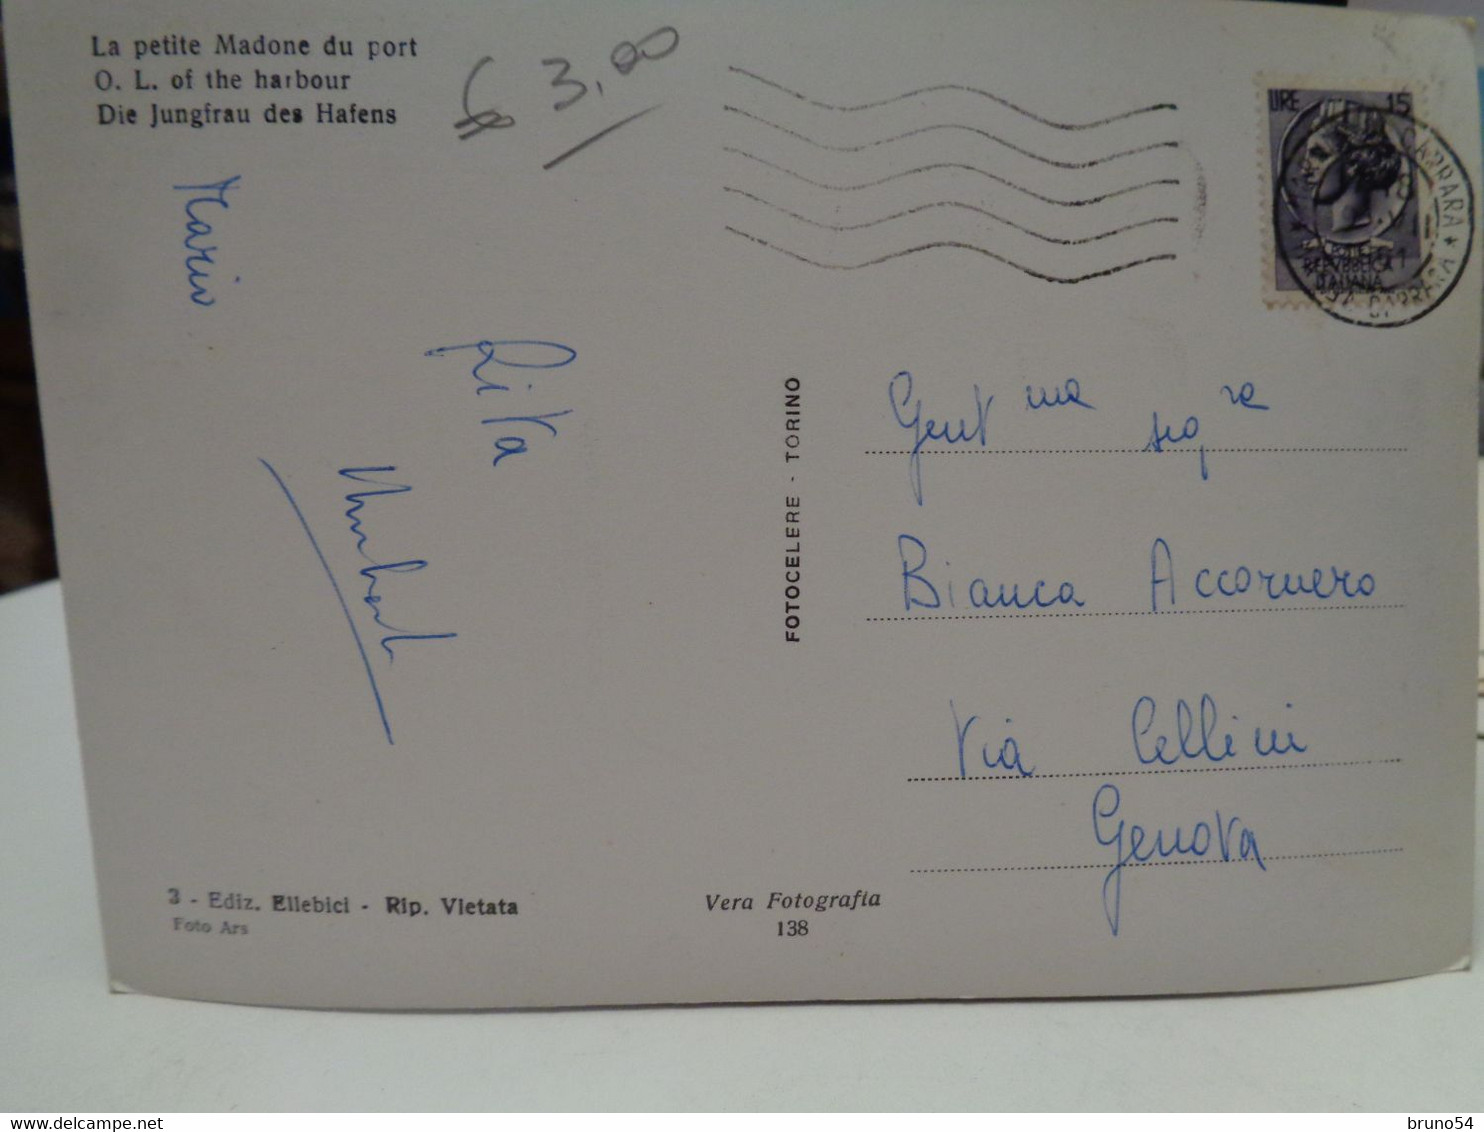 La petite Madone du port
O. L. of the harbour
Die Jungfrau des Hafens
€ 3,00
LIRE 15
CARRARA
REPVBBLICA
ITALIANA
Mario
Rita
FOTOCELERE - TORINO
Gent ma sig ra
Bianca Accornero
Via Cellini
Genova
3 - Ediz. Ellebici - Rip. Vietata
Foto Ars
Vera Fotografia
138
bruno54